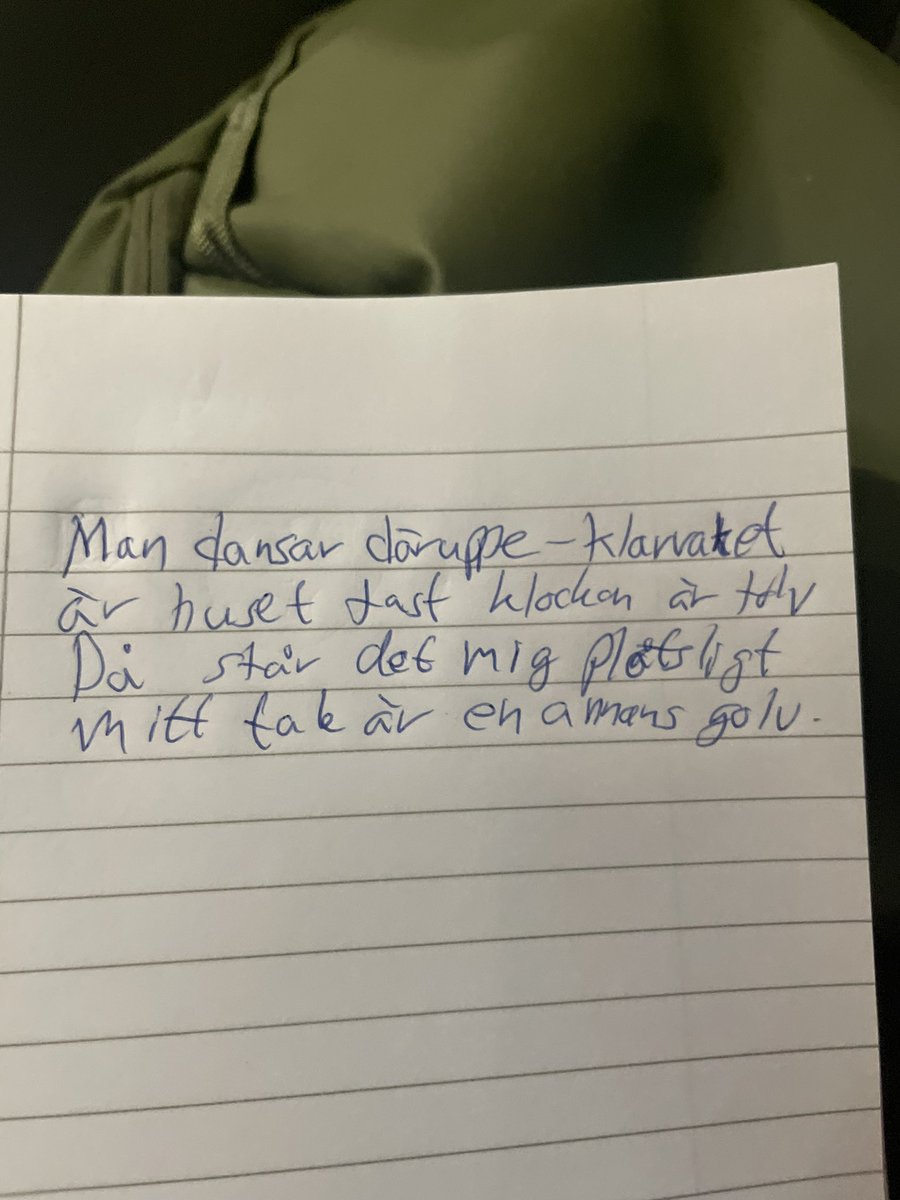 Man dansar däruppe - klarvaket
är huset fast klockan är tolv
Då slår det mig plötsligt
mitt tak är en annans golv.